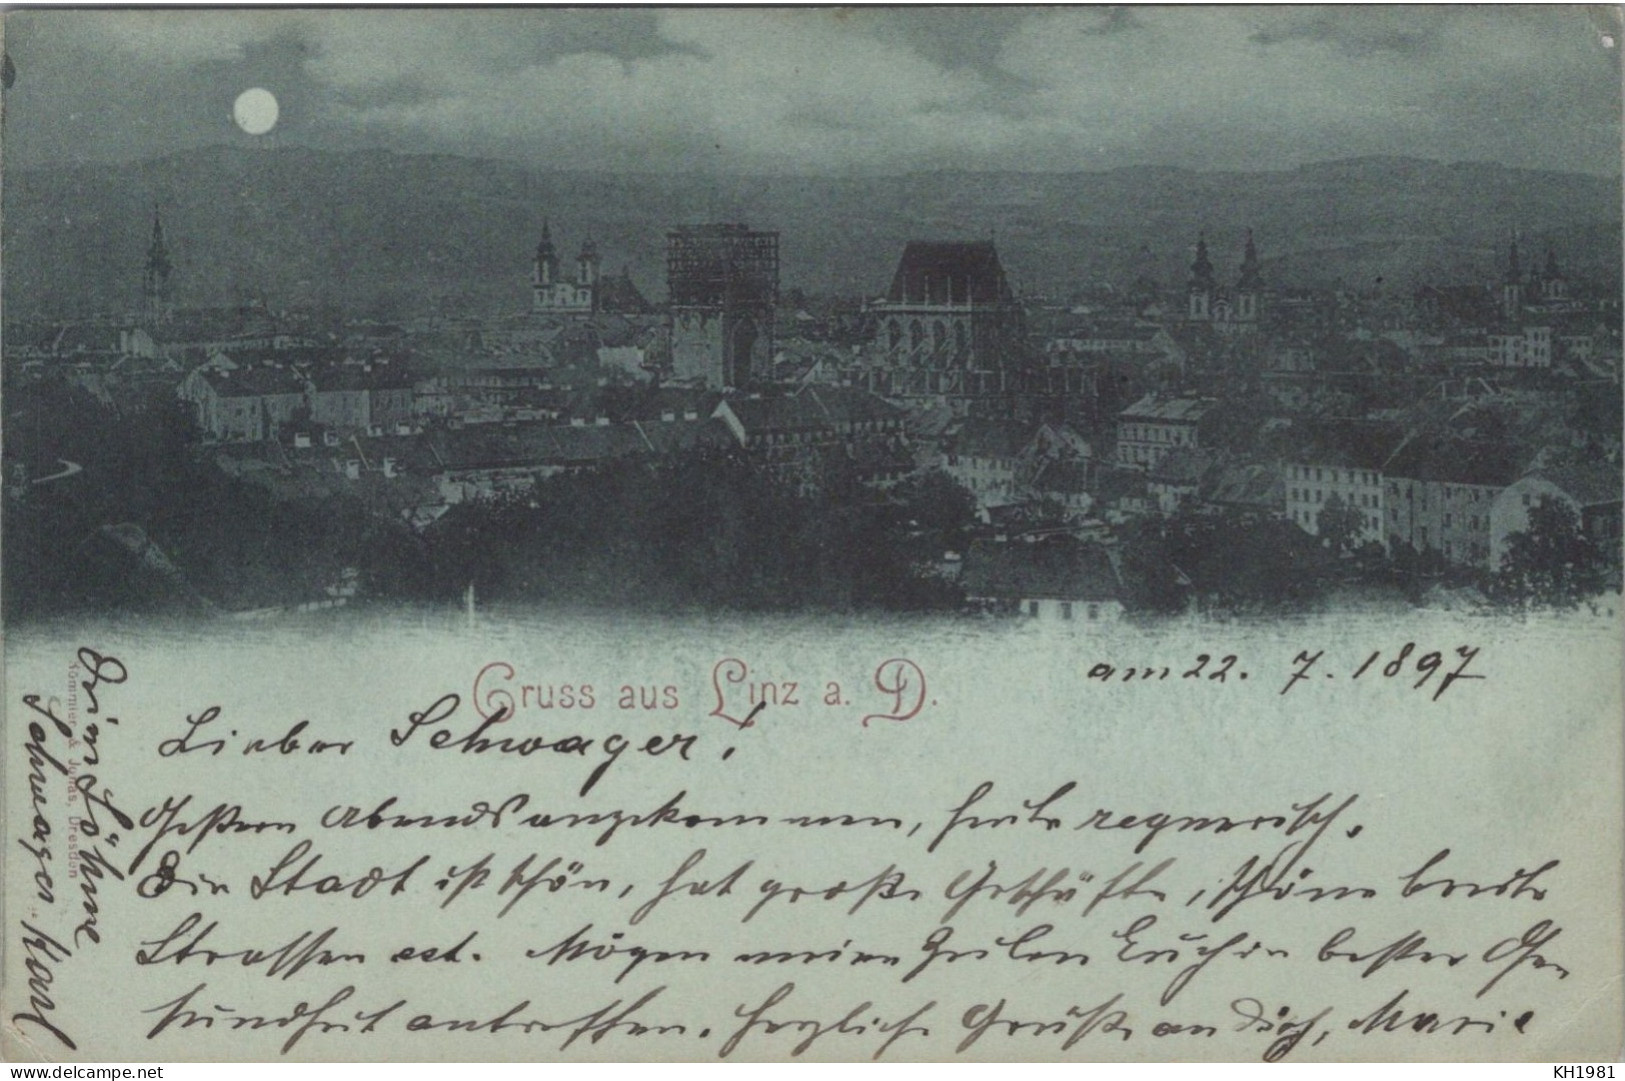 Gruss aus Linz a. D.
am 22. 7. 1897
Lieber Schwager!
Gestern Abends angekommen, heute regnerisch.
Die Stadt ist schön, hat große Geschäfte, schöne breite
Strassen ect. Mögen meine Zeilen Euch in bester Ge
sundheit antreffen. Herzliche Grüße an Dich, Marie
Söhne
Schwager Karl
Römmler & Jonas, Dresden
delcampe.net
KH1981